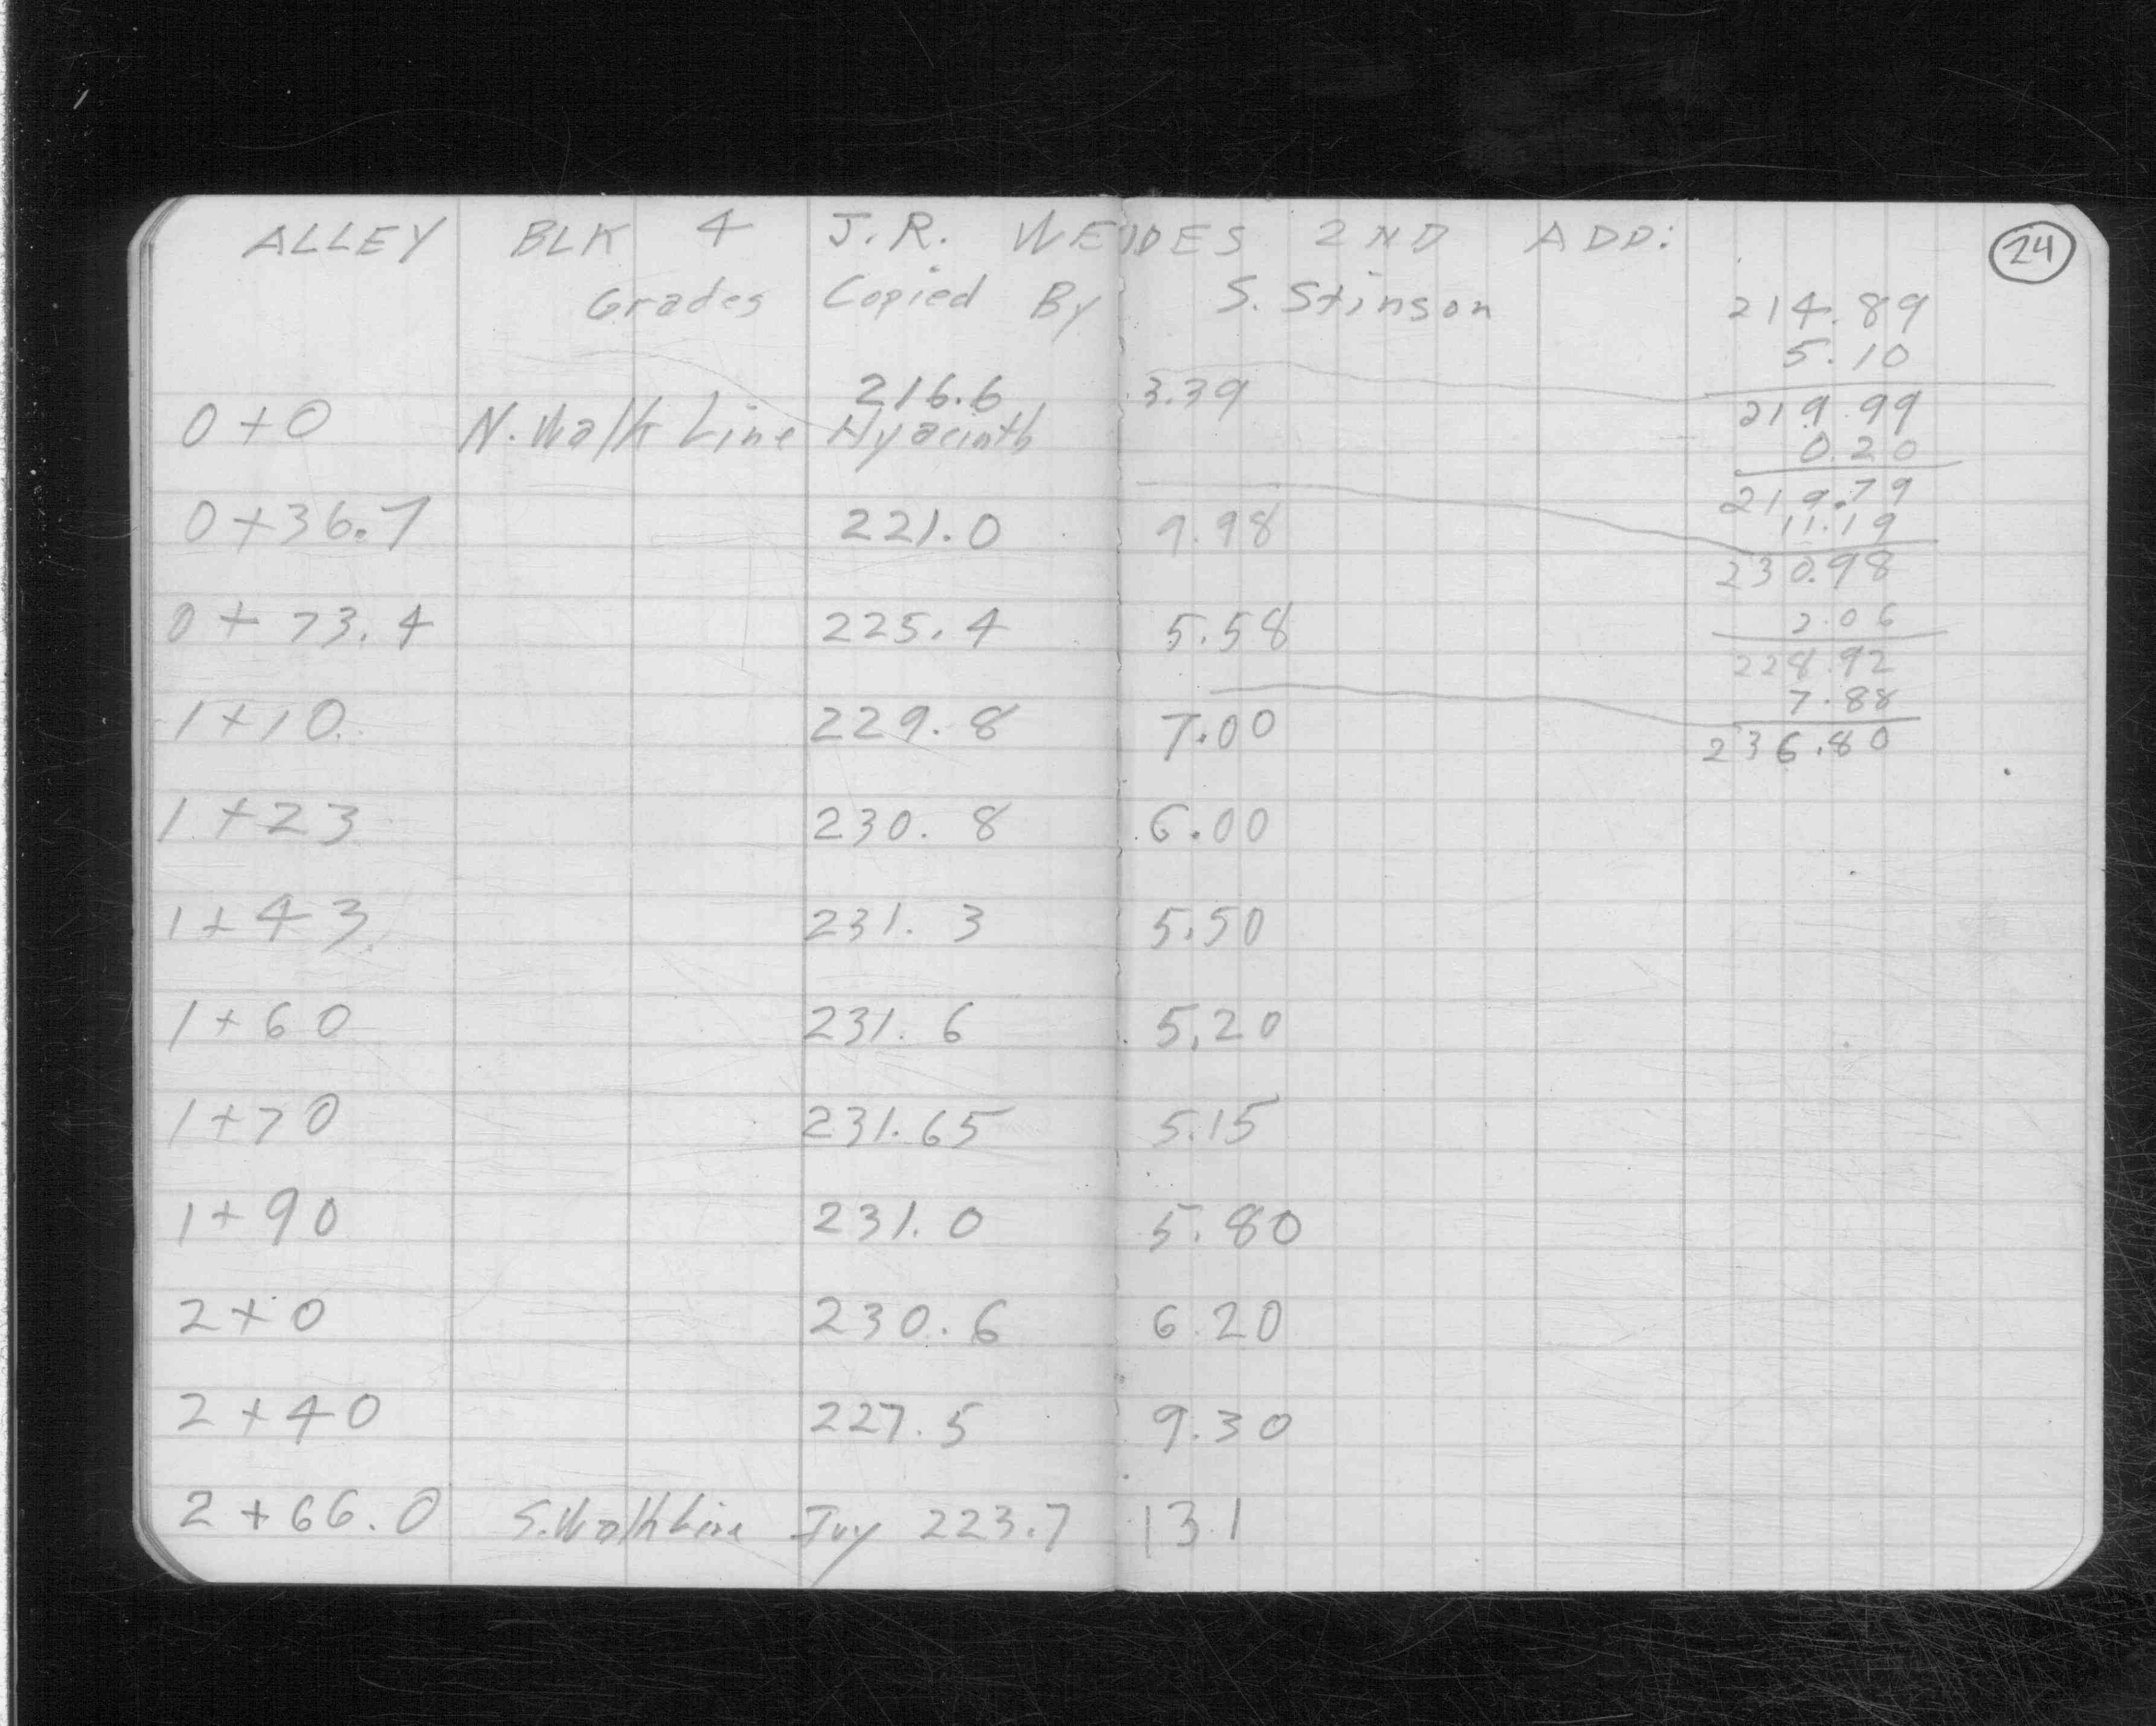 ALLEY BLK 4 J.R. WENDES 2ND ADD:
24
Grades Copied By S. Stinson
214.89
5.10
219.99
0.20
219.79
11.19
230.98
2.06
228.92
7.88
236.80
216.6 3.39
0+0 N. Walk Line Hyacinth
0+36.7 221.0 9.98
0+73.4 225.4 5.58
1+10 229.8 7.00
1+23 230.8 6.00
1+43 231.3 5.50
1+60 231.6 5.20
1+70 231.65 5.15
1+90 231.0 5.80
2+0 230.6 6.20
2+40 227.5 9.30
2+66.0 S. Walk Line Ivy 223.7 13.1